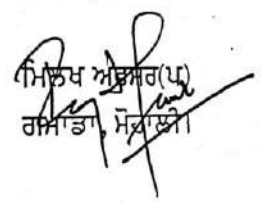 ਮਿਲਖ ਅਫ਼ਸਰ(ਪ)
ਗਮਾਡਾ, ਮੋਹਾਲੀ।